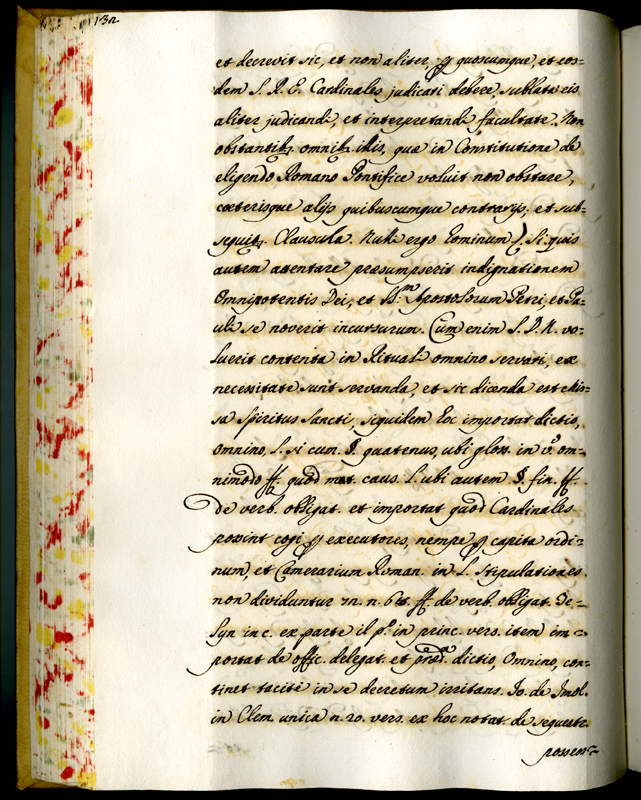 132
et decrevit sic, et non aliter, p quoscumque, et eos=
dem S. R. E. Cardinales judicari debere, sublata eis
aliter judicandi, et interpretandi facultate. Non
obstantib. omnib. illis, quæ in Constitutione de
eligendo Romano Pontifice voluit non obstare,
cœterisque alijs quibuscumque contrarijs; et sub=
sequit. Clausula. Nulli ergo hominum). Si quis
autem attentare præsumpserit indignationem
Omnipotentis Dei, et SS.m Apostolorum Petri, et Pa=
uli se noverit incursurum. Cum enim S. D. N. vo=
luerit contenta in Rituali omnino servari, ex
necessitate sunt servanda, et sic dicenda est Mis=
sa Spiritus Sancti, siquidem hoc importat dictio,
omnino, l. si cum. §. quatenus, ubi gloss. in vº. om=
nimodo ff. quod met. caus. l. ubi autem §. fin. ff.
de verb. obligat. et importat quod Cardinales
possint cogi p executores, nempe p capita ordi=
num, et Camerarium Roman. in l. Stipulationes
non dividuntur n. ff. de verb. obligat. De=
Syn in c. ex parte il pº. in princ. vers. item im=
portat de offic. delegat. et præd.a dictio, Omnino, con=
tinet tacitè in se decretum irritans. Jo. de Imol.
in Clem. unica n. 20. vers. ex hoc notat. de sequestr.
possess=